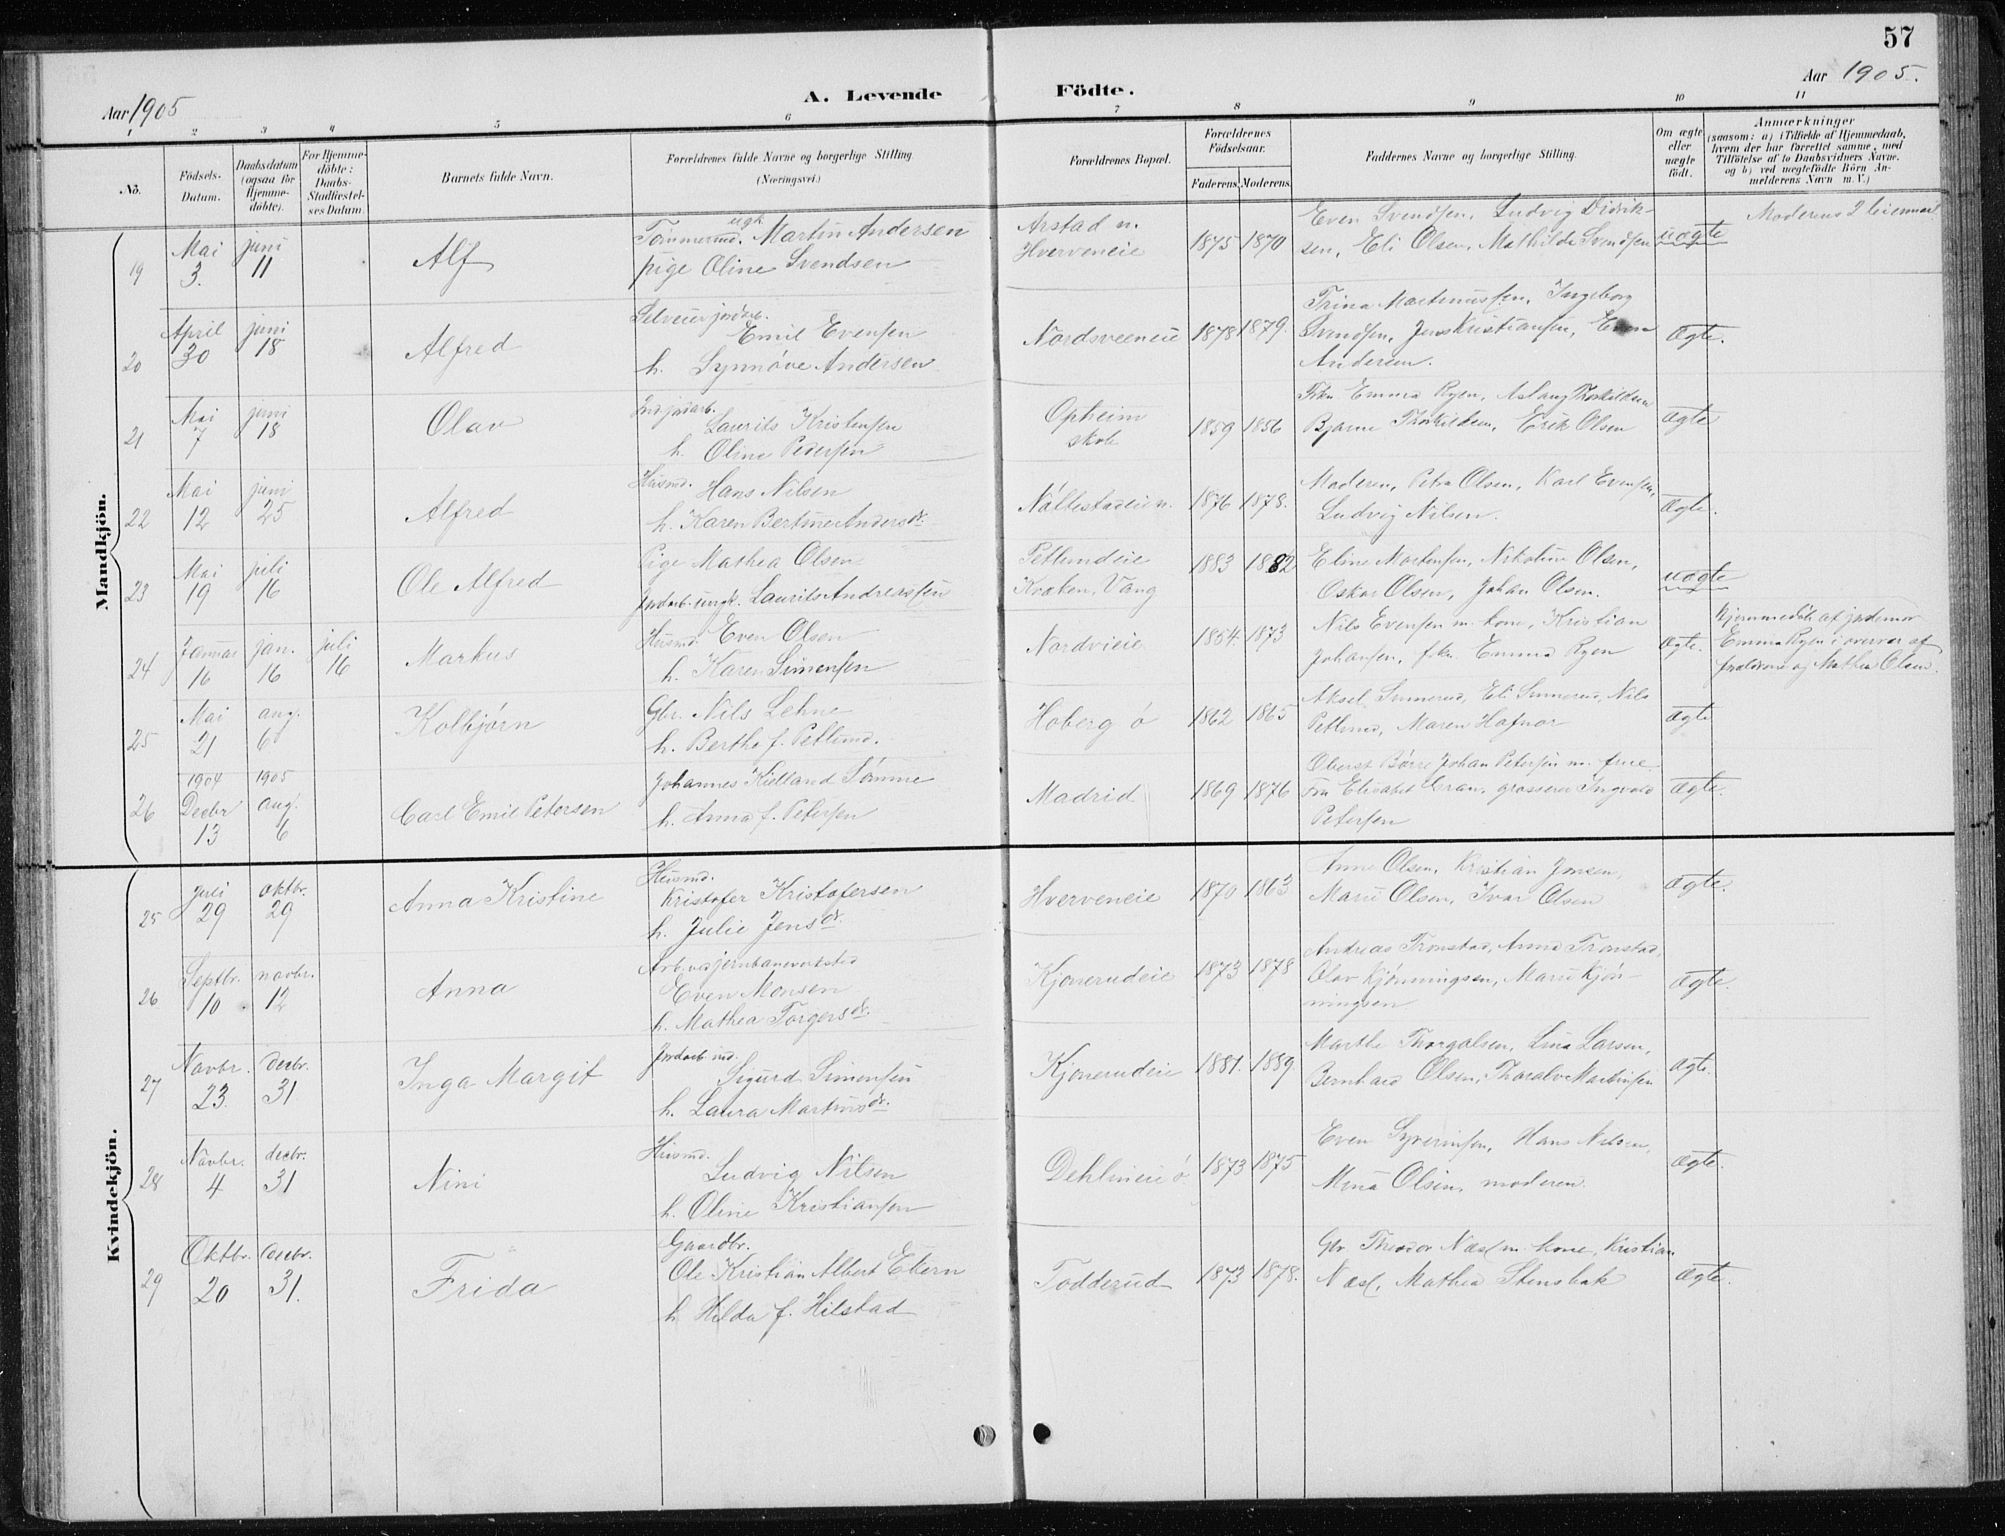 57
Aar 1905
A. Levende Födte.
Aar 1905.
1 2 3 4 5 6 7 8 9 10 11
No.
Födsels-Datum.
Daabsdatum (ogsaa for Hjemmedöbte).
For Hjemmedöbte: Daabs-Stadfæstelses Datum.
Barnets fulde Navn.
Forældrenes fulde Navne og borgerlige Stilling
(Næringsvei.)
Forældrenes Bopæl.
Forældrenes Födselsaar.
Faderens. Moderens.
Faddernes Navne og borgerlige Stilling.
Om ægte eller uægte födt.
Anmærkninger
(saasom: a) i Tilfælde af Hjemmedaab, hvem der har forrettet samme, med Tilföielse af to Daabsvidners Navne, og b) ved uægtefödte Börn Anmelderens Navn m. V.)
Mandkjön.
19 Mai 3. juni 11 Alf
Tömmermd. ugk. Martin Andersen
pige Oline Svendsen
Arstad n.
Hverveneie
1875 1870
Even Svendsen, Ludvig Didrik-
sen, Eli Olsen, Mathilde Svendsen
uægte
Moderens 2 leiermaal
20 April 30 juni 18 Alfred
Selveier jordarb.
Emil Evensen
h. Synnöve Andersen
Nordsveeneie
1878 1879.
Trina Martinussen, Ingeborg
Svendsen, Jens Kristiansen, Even
Andersen.
Ægte.
21 Mai 7 juni 18 Olav
Ind. jordarb.
Laurits Kristensen
h. Oline Pedersen
Opheim
skole
1859 1856
Frkn Emma Ryen, Aslaug Thorkildsen
Bjarne Thorkildsen, Erik Olsen
Ægte
22 Mai 12 juni 25 Alfred
Husmd. Hans Nilsen
h. Karen Bertine Andersdr.
1876 1878.
Moderen, Petra Olsen, Karl Evensen,
Ludvig Nilsen.
Ægte.
23 Mai 19 juli 16 Ole Alfred
Pige Mathea Olsen
Jordarb. ungk. Laurits Andreassen
Petlundeie
Kraken, Vang
1883 1882
Eline Martinsen, Nikoline Olsen,
Oskar Olsen, Johan Olsen.
uægte
24 Januar 16 jan. 16 juli 16 Markus
Husmd. Even Olsen
h. Karen Simensen
Nordvieie
1854. 1873
Nils Evensen m. kone, Kristian
Johansen, fkn. Emma Ryen
Ægte.
hjemmedöbt af jordemor
Emma Ryen i overvær af
forældrene og Mathea Olsen.
25 Mai 21 aug. 6 Kolbjörn
Gbr. Nils Lehne
h. Berthe f. Petlund.
Hoberg ö
1862 1865
Aksel Sunnerud, Eli Sunnerud, Nils
Petlund, Maren Hafnor
Ægte
26 1904 Decbr 13 1905 aug. 6 Carl Emil Petersen
Johannes Kielland Sömme
h. Anna f. Petersen
Madrid
1869 1876
Oberst Börre, Johan Petersen m. frue
Fru Elisabet Gran, grosserer Ingvald
Petersen
Ægte.
Kvindekjön.
25 juli 29 oktbr. 29 Anna Kristine
Husmd.
Kristofer Kristofersen
h. Julie Jensdr.
Hverveneie
1870 1863
Anne Olsen, Kristian Jonsen,
Marie Olsen, Ivar Olsen
Ægte.
26 Septbr. 10 novbr. 12 Anna
Arb. ved jernbaneverksted
Even Monsen
h. Mathea Torgersdr.
Kjonerudeie
1873 1878
Andreas Tronstad, Anna Tronstad,
Olav Kjönningsen, Marie Kjön-
ningsen
Ægte.
27 Novbr. 23. decbr. 31 Inga Margit
Jordarb. ind.
Sigurd Simensen
h. Laura Martinsdr.
Kjonerudeie
1881. 1889.
Marthe Thorgalsen, Lina Larsen,
Bernhard Olsen, Thoralv Martinsen
Ægte.
28 Novbr. 4 decbr. 31 Nini
Husmd.
Ludvig Nilsen
h. Oline Kristiansen
Dehlineie ö
1873 1875
Even Syverinsen, Hans Nilsen,
Mina Olsen, moderen.
Ægte.
29 Oktbr. 20 decbr. 31. Frida
Gaardbr.
Ole Kristian Albert Ellern
h Hilda f. Hilstad
Todderud
1873 1878.
Gbr. Theodor Næss m. kone, Kristian
Næss, Mathea Stensbak
Ægte.